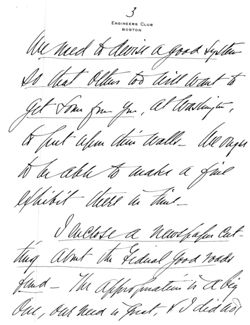 3
ENGINEERS CLUB
BOSTON
We need to devise a good system
so that others too will want to
get some from you, at Washington,
to put upon their walls. We ought
to be able to make a fine
exhibit there in time.
I enclose a newspaper cut-
ting about the Federal Good roads
fund — The appropriation is a big
one, our need is great, & I did not